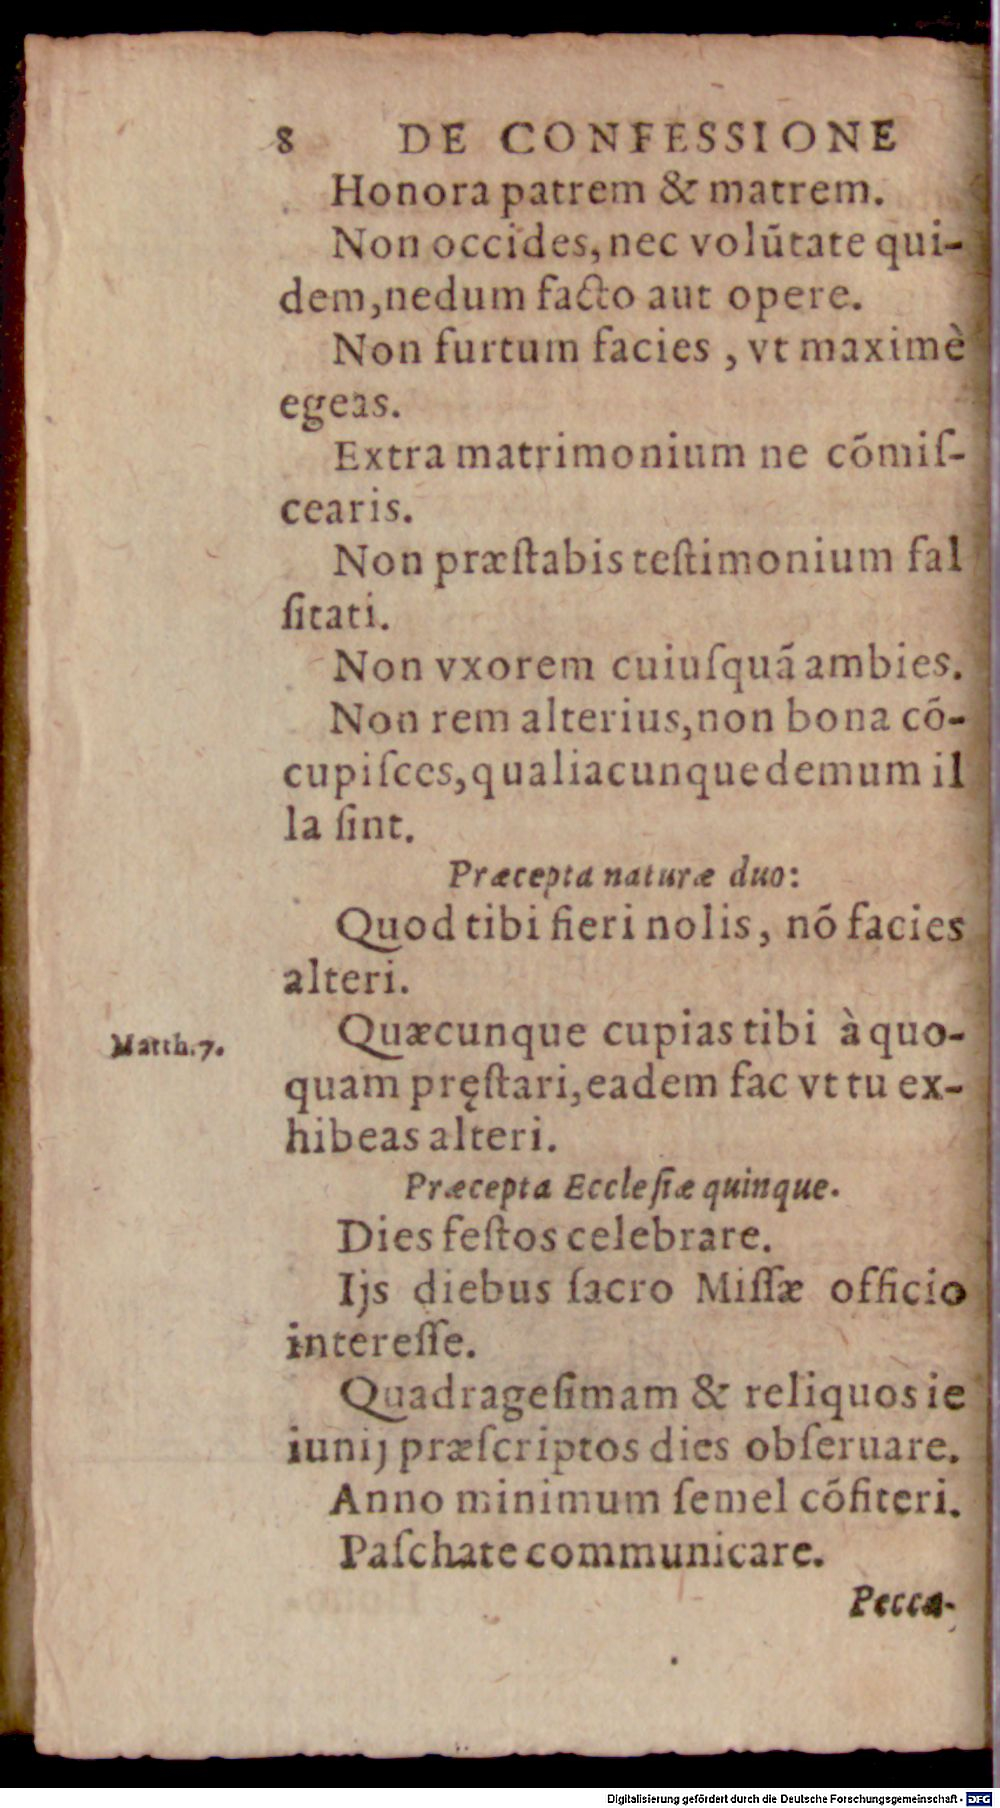 8 DE CONFESSIONE
Honora patrem & matrem.
Non occides, nec volūtate qui-
dem, nedum facto aut opere.
Non furtum facies, vt maximè
egeas.
Extra matrimonium ne cōmiſ-
cearis.
Non præſtabis teſtimonium fal
ſitati.
Non vxorem cuiuſquā ambies.
Non rem alterius, non bona cō-
cupiſces, qualiacunque demum il
la ſint.
Præcepta naturæ duo:
Quod tibi fieri nolis, nō facies
alteri.
Matth. 7.
Quæcunque cupias tibi à quo-
quam pręſtari, eadem fac vt tu ex-
hibeas alteri.
Præcepta Eccleſiæ quinque.
Dies feſtos celebrare.
Ijs diebus ſacro Miſſæ officio
intereſſe.
Quadrageſimam & reliquos ie
iunij præſcriptos dies obſeruare.
Anno minimum ſemel cōfiteri.
Paſchate communicare.
Pecca-
Digitalisierung gefördert durch die Deutsche Forschungsgemeinschaft - DFG